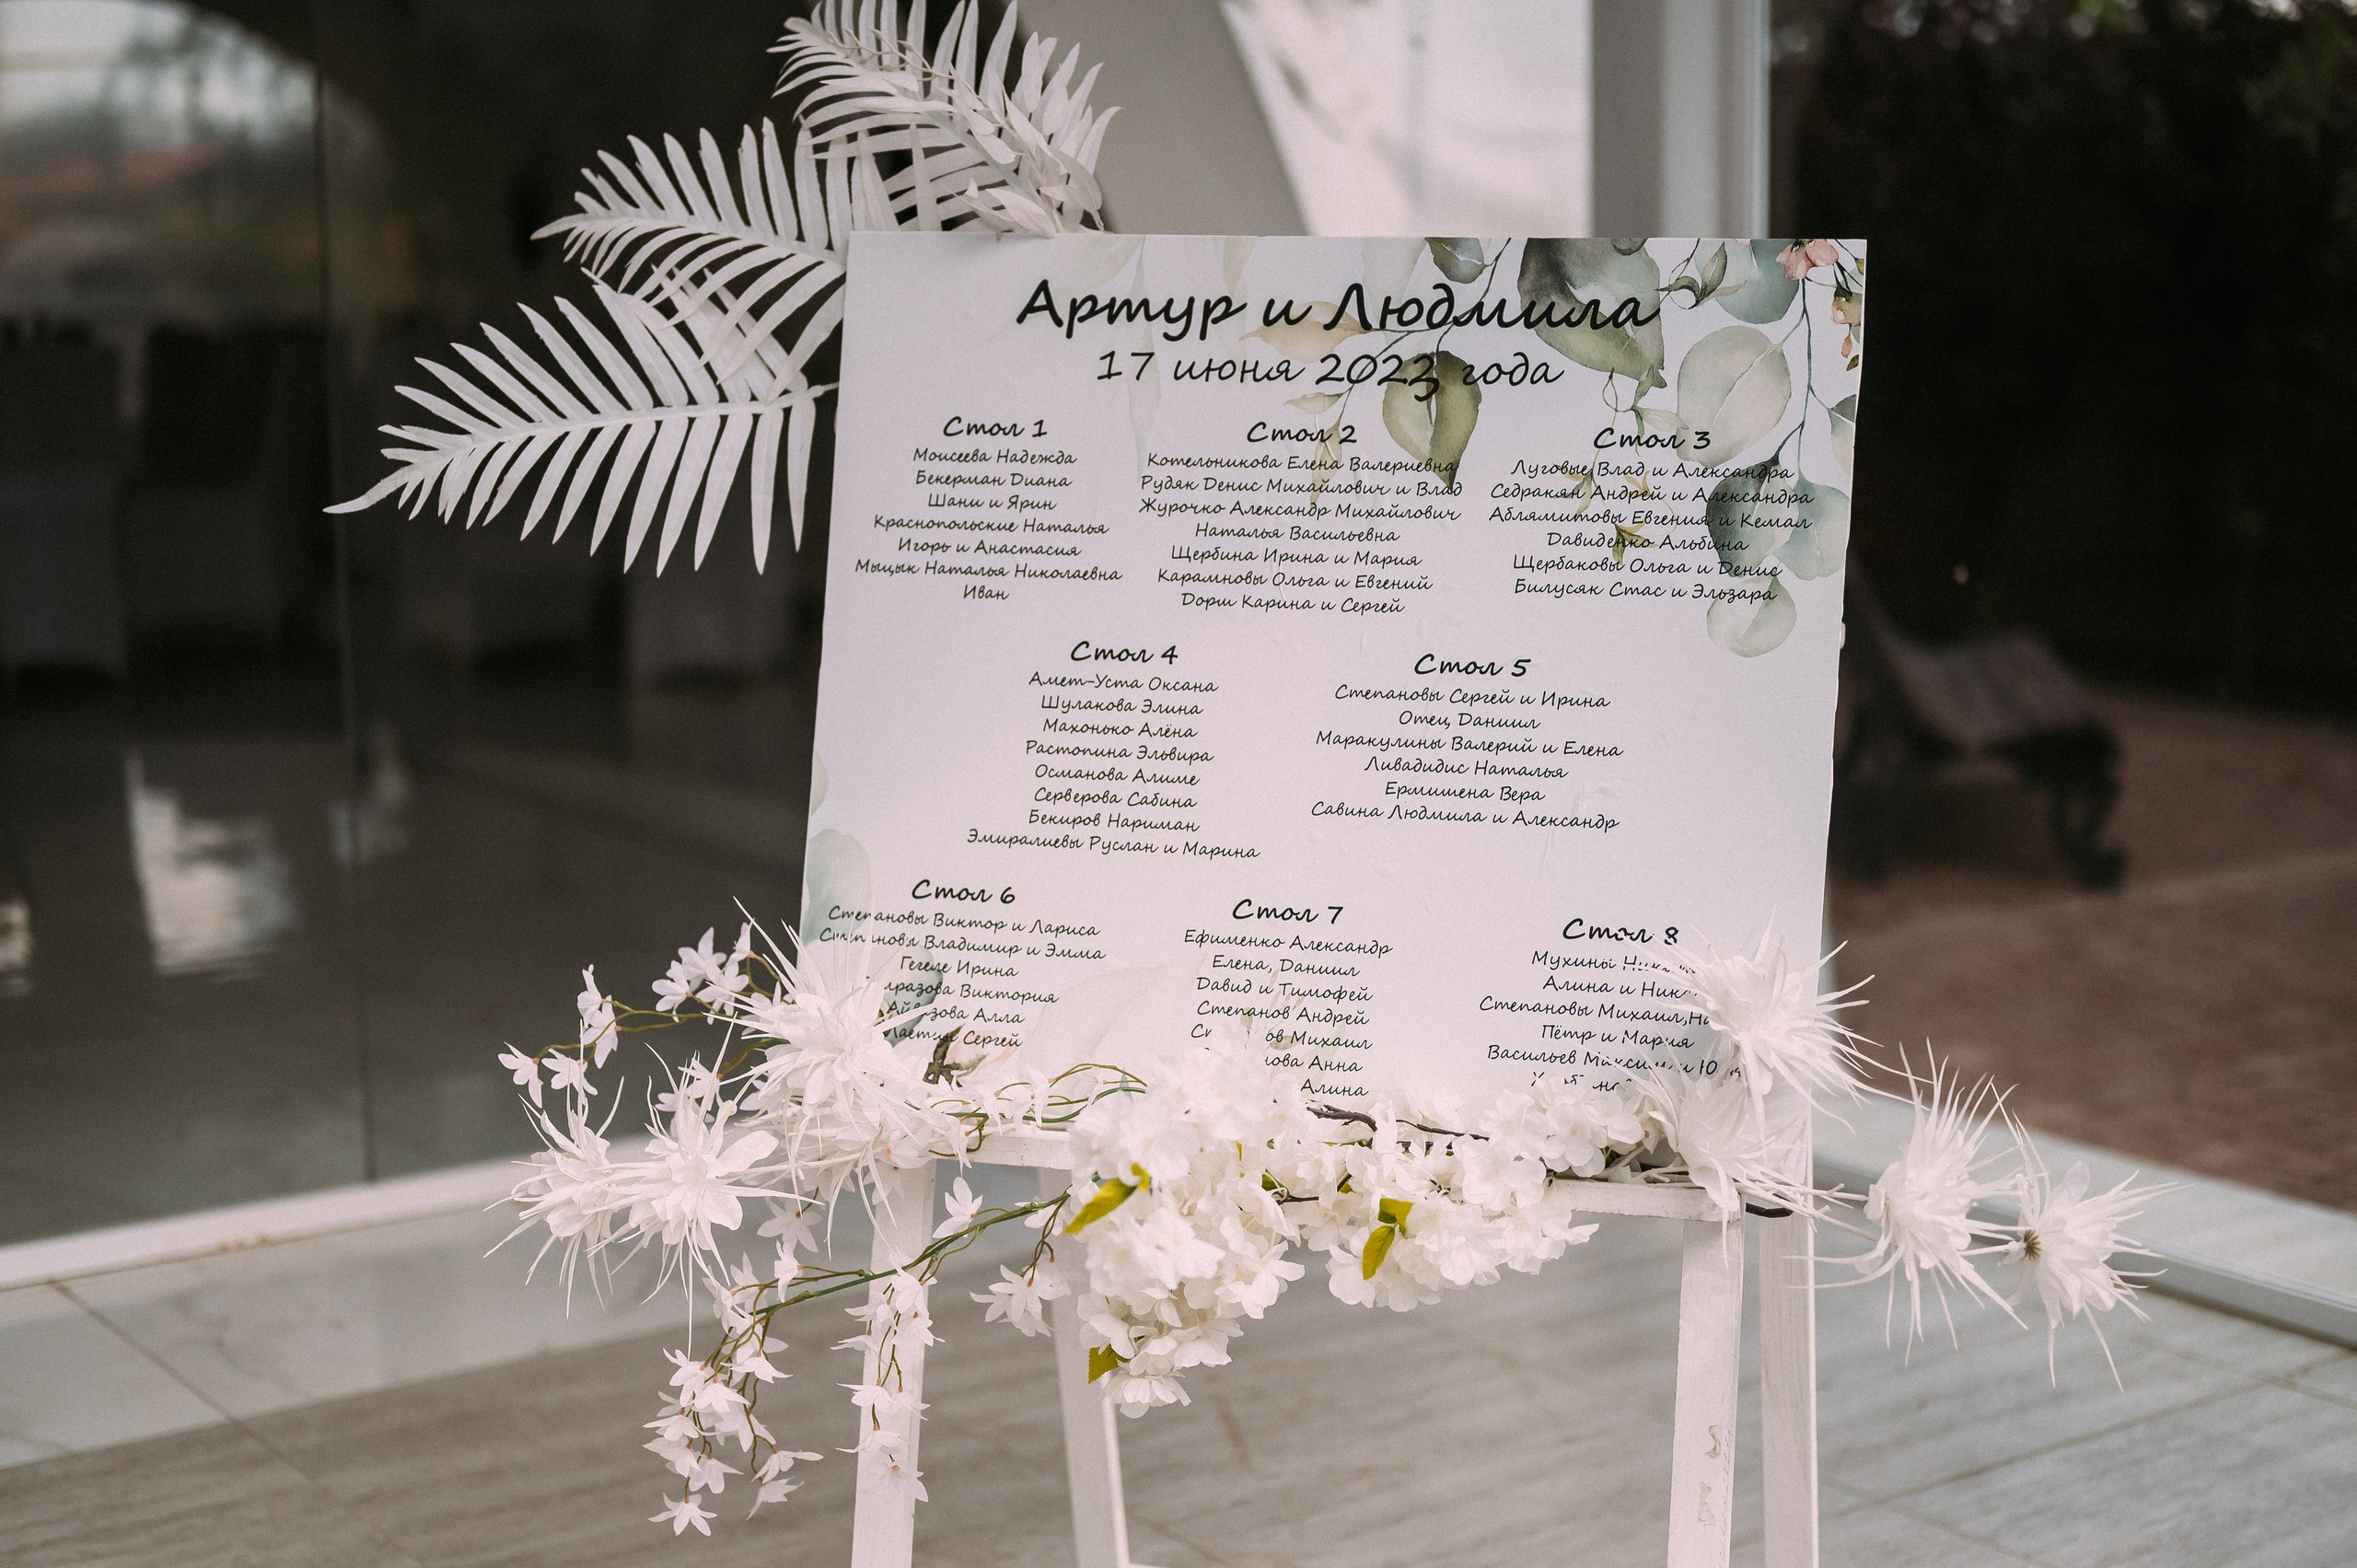 Артур и Людмила
17 июня 2023 года
Стол 1
Моисеева Надежда
Бекерман Диана
Шани и Ярин
Краснопольские Наталья
Игорь и Анастасия
Мыцык Наталья Николаевна
Иван
Стол 2
Котельникова Елена Валериевна
Рудяк Денис Михайлович и Влад
Журочко Александр Михайлович
Наталья Васильевна
Щербина Ирина и Мария
Карамновы Ольга и Евгений
Дорш Карина и Сергей
Стол 3
Луговые Влад и Александра
Седракян Андрей и Александра
Аблямитовы Евгения и Кемал
Давиденко Альбина
Щербаковы Ольга и Денис
Билусяк Стас и Эльзара
Стол 4
Амет-Уста Оксана
Шулакова Элина
Махонько Алёна
Растопина Эльвира
Османова Алиме
Серверова Сабина
Бекиров Нариман
Эмиралиевы Руслан и Марина
Стол 5
Степановы Сергей и Ирина
Отец Даниил
Маракулины Валерий и Елена
Ливадидис Наталья
Ермишена Вера
Савина Людмила и Александр
Стол 6
Степановы Виктор и Лариса
Степановы Владимир и Эмма
Гегеле Ирина
Виктория
Алла
Сергей
Стол 7
Ефименко Александр
Елена, Даниил
Давид и Тимофей
Степанов Андрей
Михаил
Анна
Алина
Стол 8
Мухины
Алина и
Степановы Михаил,
Пётр и Мария
Васильев Максим и